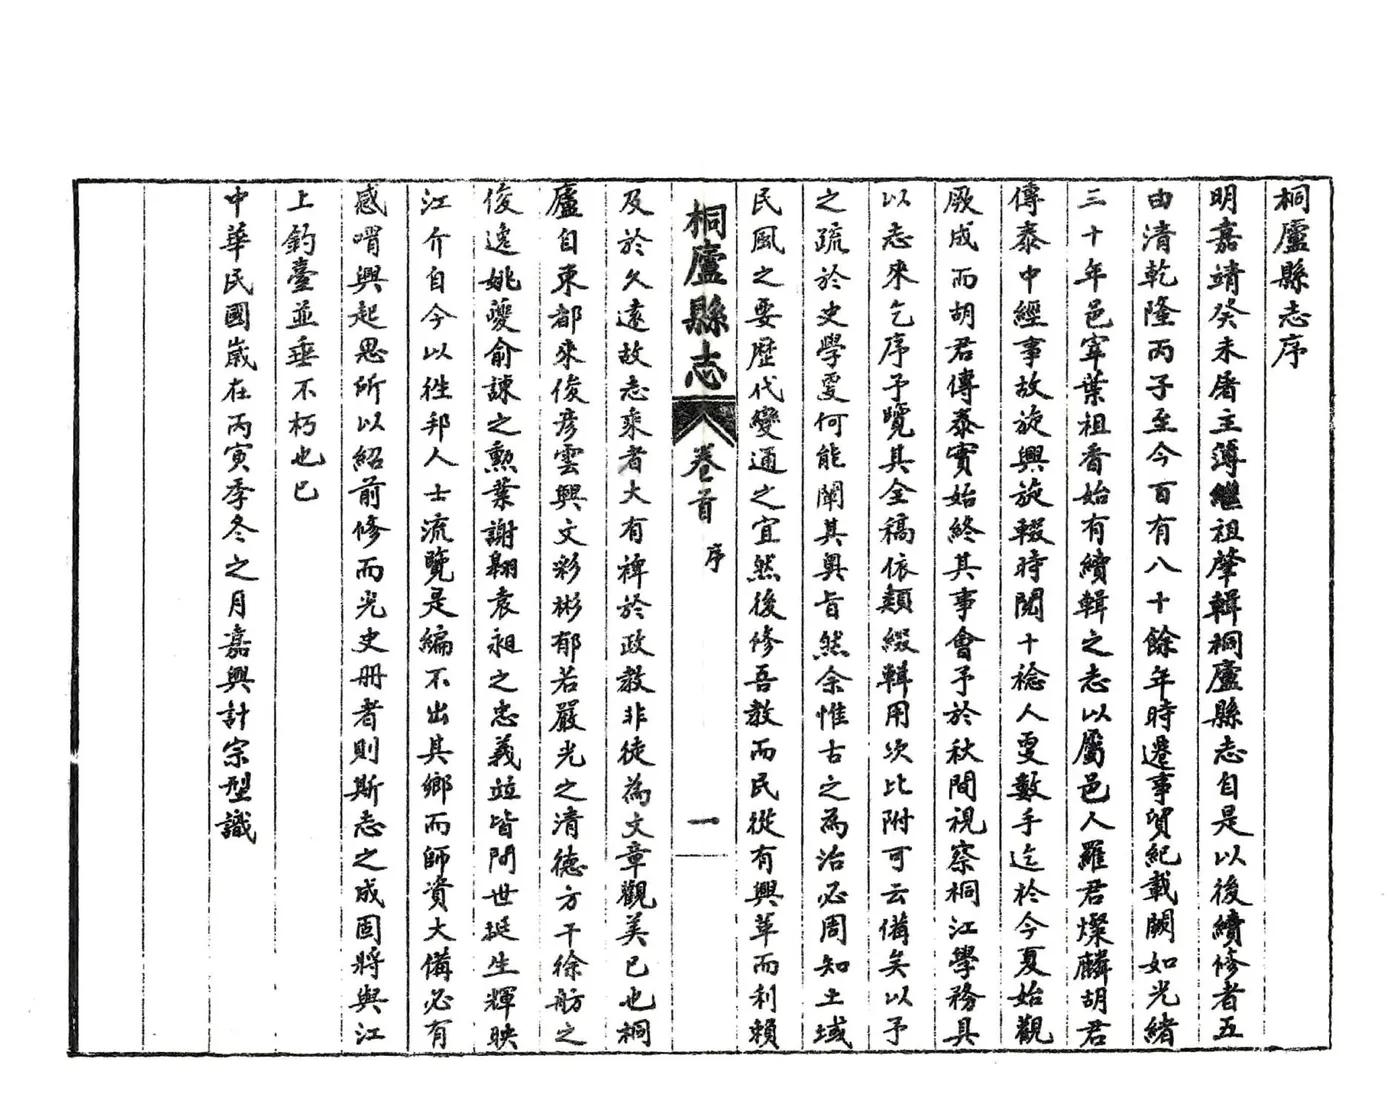 桐廬縣志序
明嘉靖癸未屠主薄繼祖肇輯桐廬縣志自是以後續修者五
由清乾隆丙子至今百有八十餘年時遷事貿紀載闕如光緒
三十年邑宰葉祖香始有續輯之志以屬邑人羅君燦麟胡君
傳泰中經事故旋興旋輟時閱十稔人更數手迄於今夏始觀
厥成而胡君傳泰實始終其事會予於秋間視察桐江學務具
以志來乞序予覽其全稿依類綴輯用次比附可云備矣以予
之疏於史學更何能闡其奧旨然余惟古之為治必周知土域
民風之要歷代變通之宜然後修吾教而民從有興革而利賴
桐廬縣志 卷首 序 一
及於久遠故志乘者大有裨於政教非徒為文章觀美已也桐
廬自東都來俊彥雲興文彩彬郁若嚴光之清德方干徐舫之
俊逸姚夔俞諫之勳業謝翱袁昶之忠義並皆間世挺生輝映
江介自今以往邦人士流覽是編不出其鄉而師資大備必有
感喟興起思所以紹前修而光史冊者則斯志之成固將與江
上釣臺並垂不朽也已
中華民國歲在丙寅季冬之月嘉興計宗型識